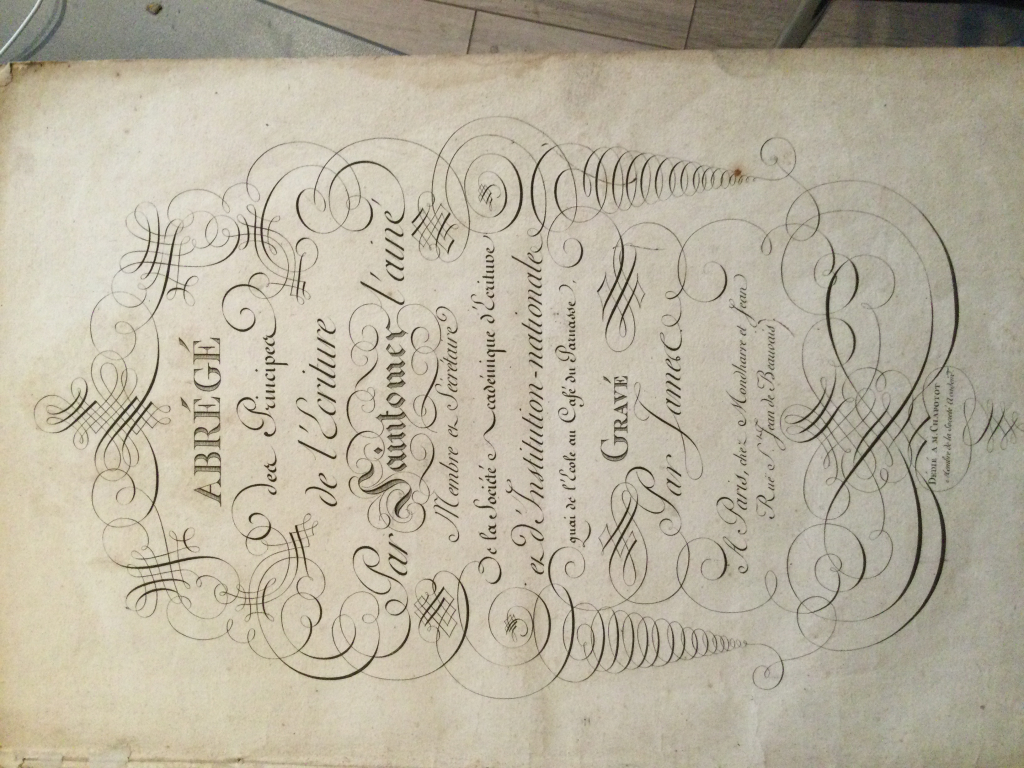 ABRÉGÉ
des Principes
de l'Ecriture
Par Saintomer l'ainé
Membre et Sécrétaire
De la Société Academique d'Ecriture
et d'Institution-nationale
quai de l'Ecole au Café du Parnasse.
GRAVÉ
Par Jame
A Paris, chez Mondharre et Jean
Rue St. Jean de Beauvais
DEDIÉ A M. CHADOTOT
Membre de la Société